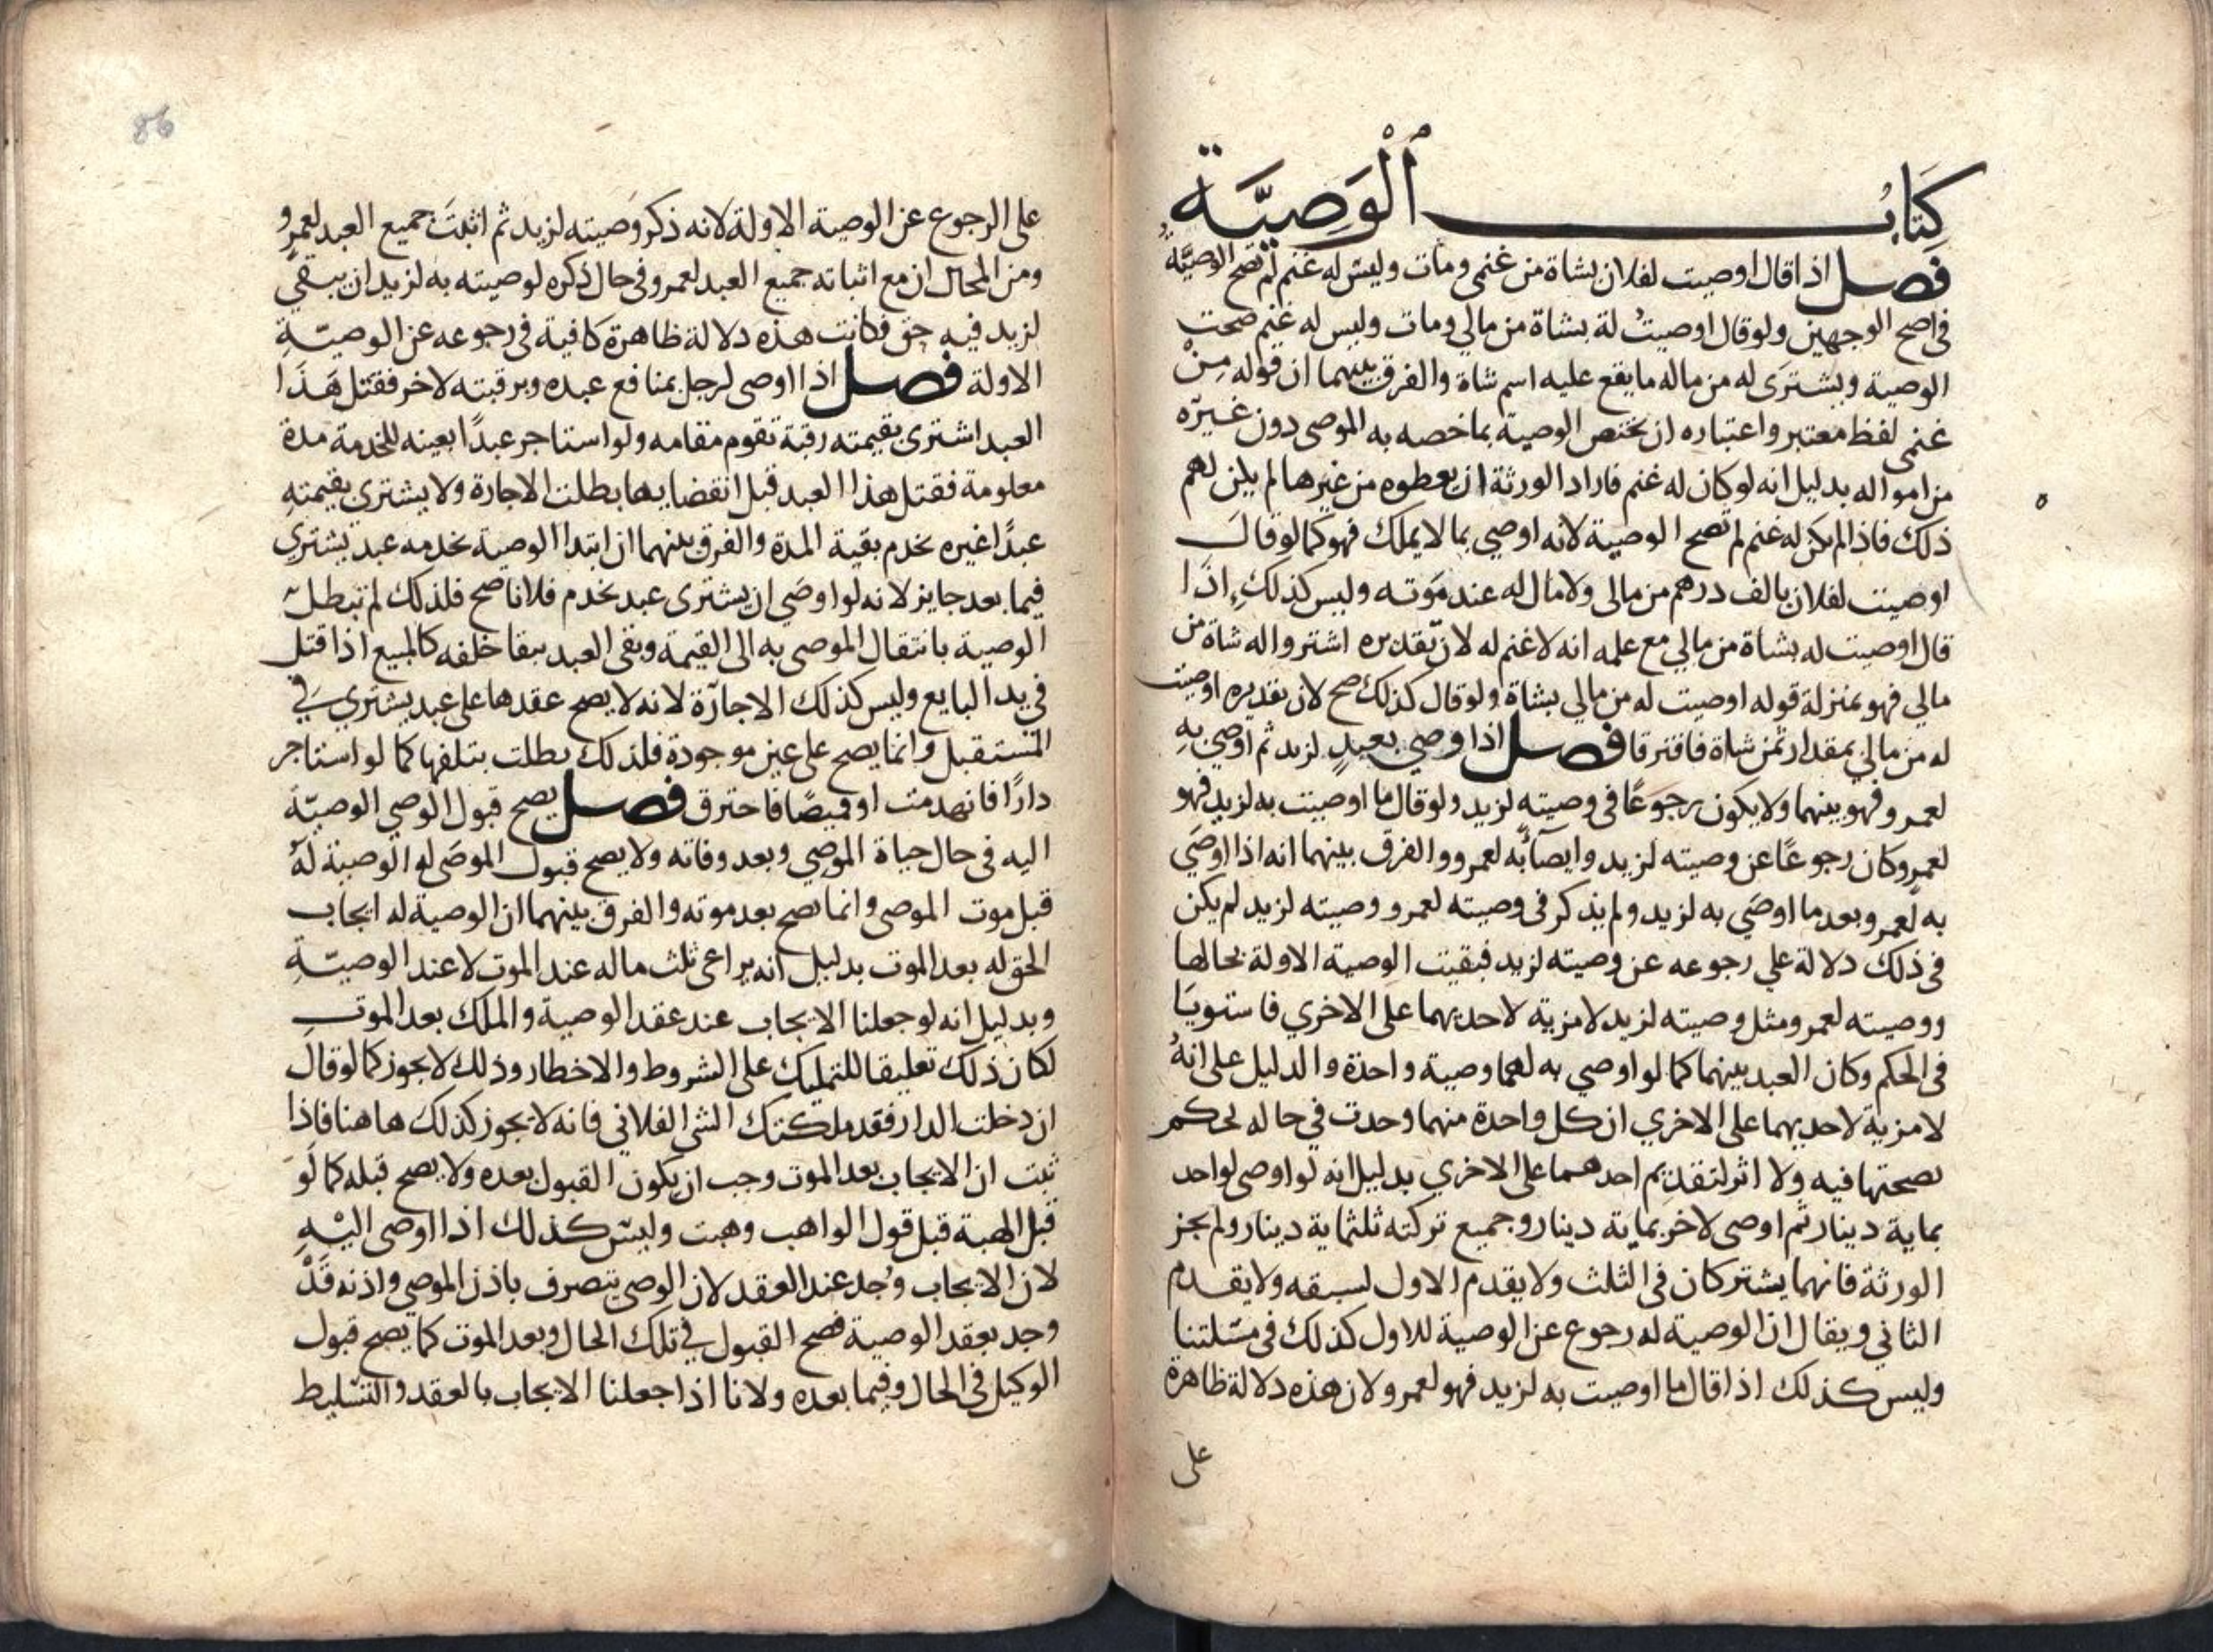 كِتَابُ ٱلْوَصِيَّةِ
فصل اذا قال اوصيت لفلان بشاة من غنمى ومات وليس له غنم لم تصح الوصيَّة
فى اصح الوجهين ولو قال اوصيتُ لة بشاة من مالي ومات وليس له غنم صحت
الوصية ويشترَى له من ماله ما يقع عليه اسم شاة والفرق بينهما ان قوله مِنْ
غنمى لفظ معتبر واعتباره ان يختص الوصية بما خصه به الموصى دون غيره
من امواله بدليل انه لو كان له غنم فاراد الورثة ان يعطوه من غيرها لم يكن لهم
ذلك فاذا لم يكن له غنم لم تصح الوصية لانه اوصي بما لا يملك فهو كما لو قال
اوصيت لفلان بالف درهم من مالى ولا مال له عند موته وليس كذلك اذا
قال اوصيت له بشاة من مالي مع علمه انه لا غنم له لان تقديره اشتروا له شاة من
مالي فهو بمنزلة قوله اوصيت له من مالي بشاة ولو قال كذلك صح لان تقديره اوصيت
له من مالي بمقدار ثمن شاة فافترقا فصل اذا اوصي بعبدٍ لزيد ثم اوصي بهِ
لعمرو فهو بينهما ولا يكون رجوعًا فى وصيته لزيد ولو قال ما اوصيت به لزيد فهو
لعمرو كان رجوعًا عن وصيته لزيد وايصآءً به لعمرو والفرق بينهما انه اذا اوصَي
به لعمرو بعد ما اوصَي به لزيد ولم يذكر فى وصيته لعمرو وصيته لزيد لم يكن
فى ذلك دلالة علي رجوعه عن وصيته لزيد فبقيت الوصية الاولة بحالها
ووصيته لعمرو مثل وصيته لزيد لا مزية لاحديهما على الاخري فاستويَا
فى الحكم وكان العبد بينهما كما لو اوصي به لهما وصية واحدة والدليل على انهُ
لا مزية لاحديهما على الاخري ان كل واحدة منهما وحدت في حالة يحكم
بصحتها فيه ولا اثر لتقديم احدهما على الاخري بدليل انه لو اوصى لواحد
بماية دينار ثم اوصى لاخر بماية دينار وجميع تركته ثلثماية دينار ولم يجز
الورثة فانهما يشتركان فى الثلث ولا يقدم الاول لسبقه ولا يقدم
الثاني ويقال ان الوصية له رجوع عن الوصية للاول كذلك فى مسٔلتنا
وليس كذلك اذا قال ما اوصيت به لزيد فهو لعمرو لان هذه دلالة ظاهرة
على
86
على الرجوع عن الوصية الاولة لانه ذكر وصيته لزيد ثم اثبتَ جميع العبد لعمرو
ومن المحال ان مع اثباته جميع العبد لعمرو فى حال ذكره لوصيته به لزيد ان يبقي
لزيد فيه حق فكانت هذه دلالة ظاهرة كافية فى رجوعه عن الوصيّةِ
الاولة فصل اذا اوصى لرجل بمنافع عبده وبرقبته لاخر فقتل هَذَا
العبد اشترى بقيمته رقبة تقوم مقامه ولو استاجر عبدًا بعينه للخدمة مدة
معلومة فقتل هذا العبد قبل انقضايها بطلت الاجارة ولا يشتري بقيمتهِ
عبدًا غيره يخدم بقية المدة والفرق بينهما ان ابتدا الوصية بخدمه عبد يشتري
فيما بعد جايز لانه لو اوصَي ان يشترى عبد يخدم فلانا صح فلذلك لم تبطل
الوصية بانتقال الموصى به الى القيمة وبقى العبد ببقا خلفه كالمبيع اذا قتل
في يد البايع وليس كذلك الاجارة لانه لا يصح عقدها على عبد يشتري في
المستقبل وانما يصح على عين موجودة فلذلك بطلت بتلفها كما لو استاجر
دارًا فانهدمت او قميصًا فاحترق فصل يصح قبول الوصي الوصيّة
اليه فى حال حياة الموصي وبعد وفاته ولا يصح قبول الموصَى له الوصية لهُ
قبل موت الموصى وانما يصح بعد موته والفرق بينهما ان الوصية له ايجاب
الحق له بعد الموت بدليل انه يراعى ثلث ماله عند الموت لا عند الوصيّةِ
وبدليل انه لو جعلنا الايجاب عند عقد الوصية والملك بعد الموتِ
لكان ذلك تعليقا للتمليك على الشروط والاخطار وذلك لا يجوز كما لو قال
ان دخلت الدار فقد ملكتك الشي الفلاني فانه لا يجوز كذلك هاهنا فاذا
ثبت ان الايجاب بعد الموت وجب ان يكون القبول بعده ولا يصح قبله كما لَو
قبل الهبة قبل قول الواهب وهبت وليس كذلك اذا اوصى اليْهِ
لان الايجاب وُجد عند العقد لان الوصى يتصرف باذن الموصي واذنه قَدْ
وجد بعقد الوصية فصح القبول في تلك الحال وبعد الموت كما يصح قبول
الوكيل فى الحال وفيما بعده ولانا اذا جعلنا الايجاب بالعقد والتسليط